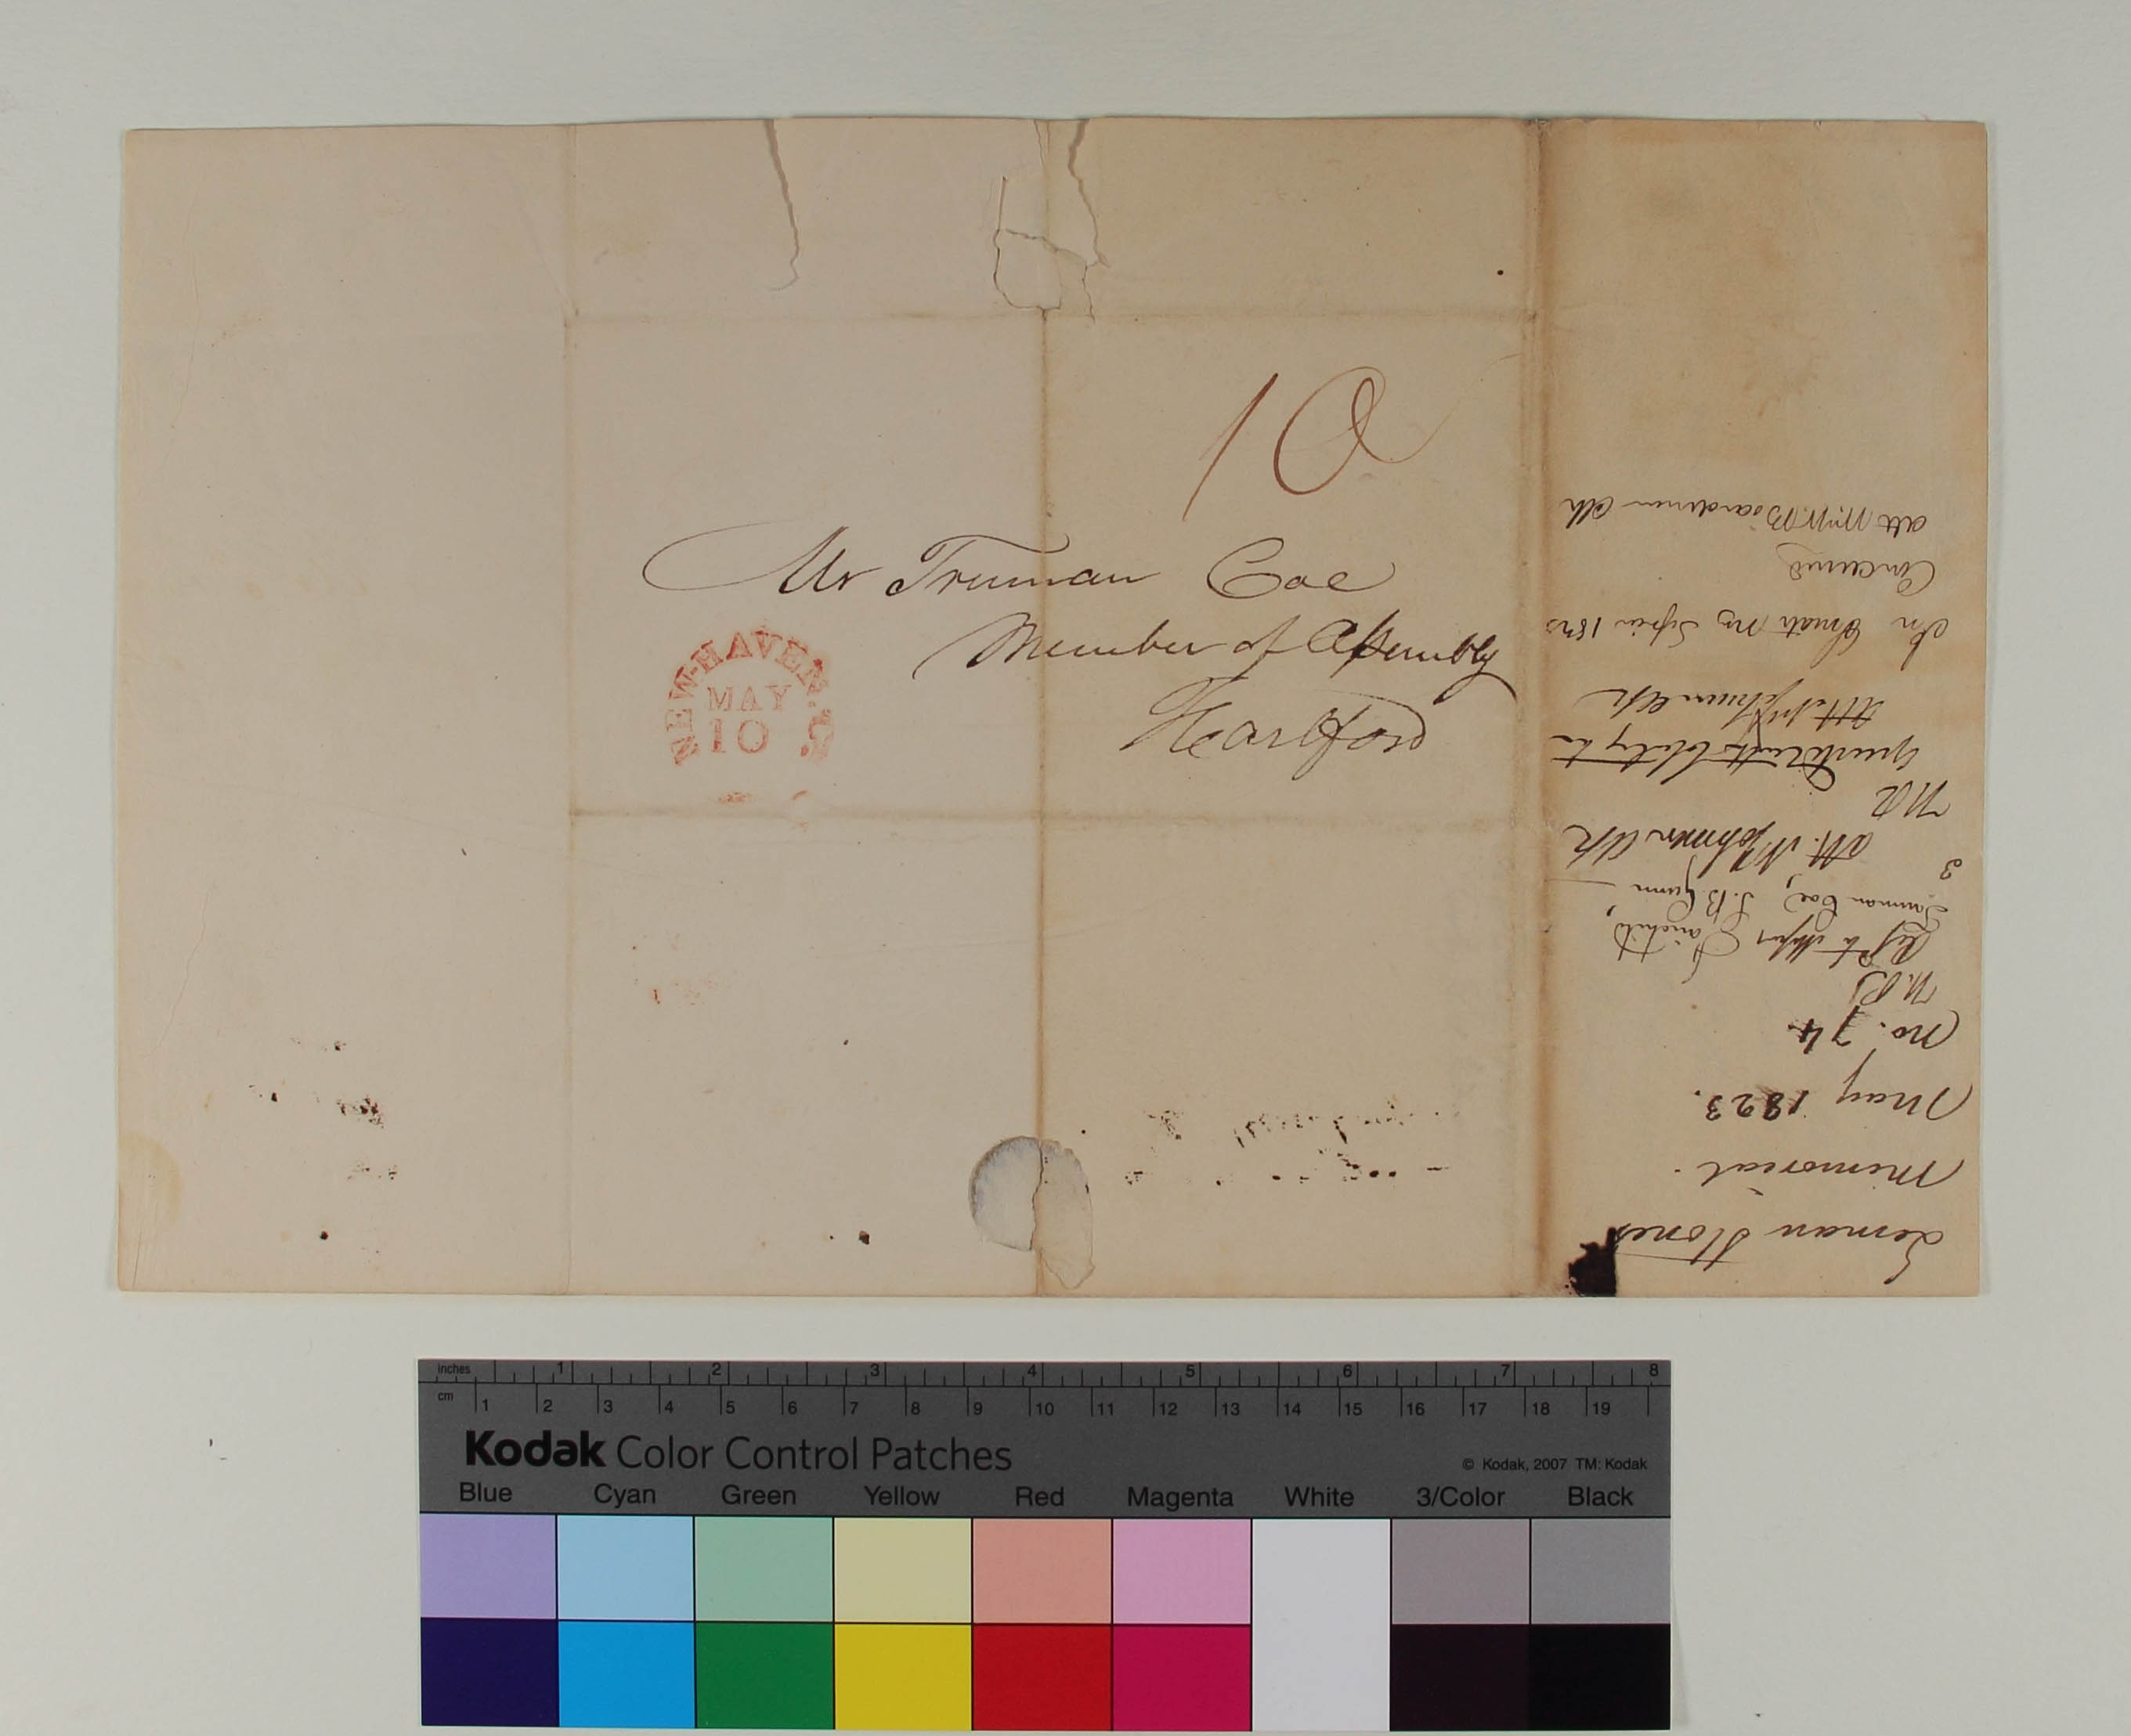 10
Mr Truman Coe
Member of Assembly
Hartford
NEW-HAVEN. C.
MAY
10
Leman Stones
Memorial.
May 1823.
No. 74
H.R.
Ref to Messrs Fairchild,
Truman Coe, S. B. Gunn
3
Att. N Johnson Clk
HR
Att. N Johnson Clk
In Senate May Session 1823
Concurred
Att Wm. W. Boardman Clk
inches 1 2 3 4 5 6 7 8
cm 1 2 3 4 5 6 7 8 9 10 11 12 13 14 15 16 17 18 19
Kodak Color Control Patches
© Kodak, 2007 TM: Kodak
Blue Cyan Green Yellow Red Magenta White 3/Color Black